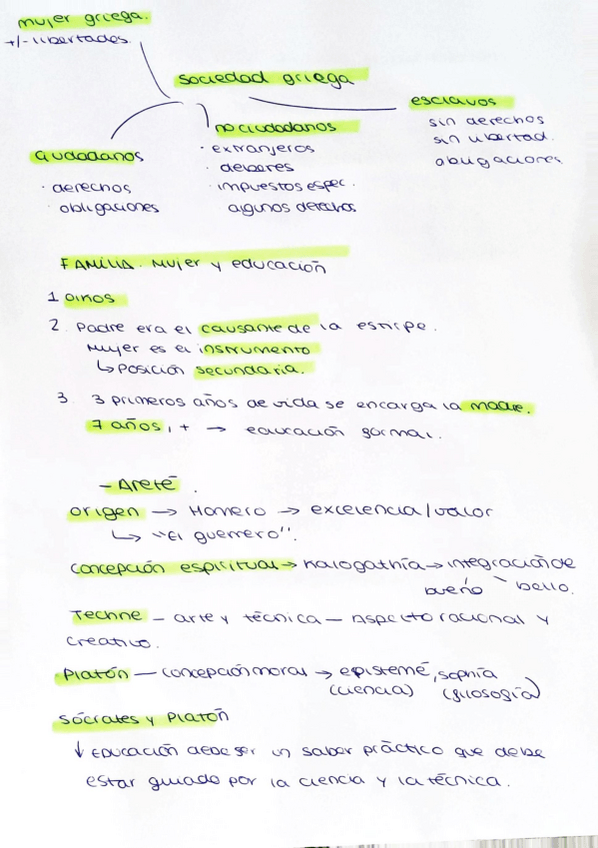 mujer griega.
+/- libertades.
Sociedad griega
esclavos
sin derechos
sin libertad.
obligaciones
no ciudadanos
· extranjeros
· deberes
· impuestos espec.
algunos derechos.
Ciudadanos
· derechos
· obligaciones
FAMILIA. Mujer y educación
1 oikos
2. Padre era el causante de la estirpe.
Mujer es el instrumento
↳ Posición secundaria.
3. 3 primeros años de vida se encarga la madre.
7 años, + → educación formal.
- Areté.
origen → Homero → excelencia/valor
↳ "El guerrero".
Concepción espiritual → kalogathía → integración de
bueno bello.
Techne - arte y técnica - Aspecto racional y
creativo.
Platón - concepción moral → epistemé, sophía
(ciencia) (filosofía)
Sócrates y Platón
↓ Educación debe ser un saber práctico que debe
estar guiado por la ciencia y la técnica.